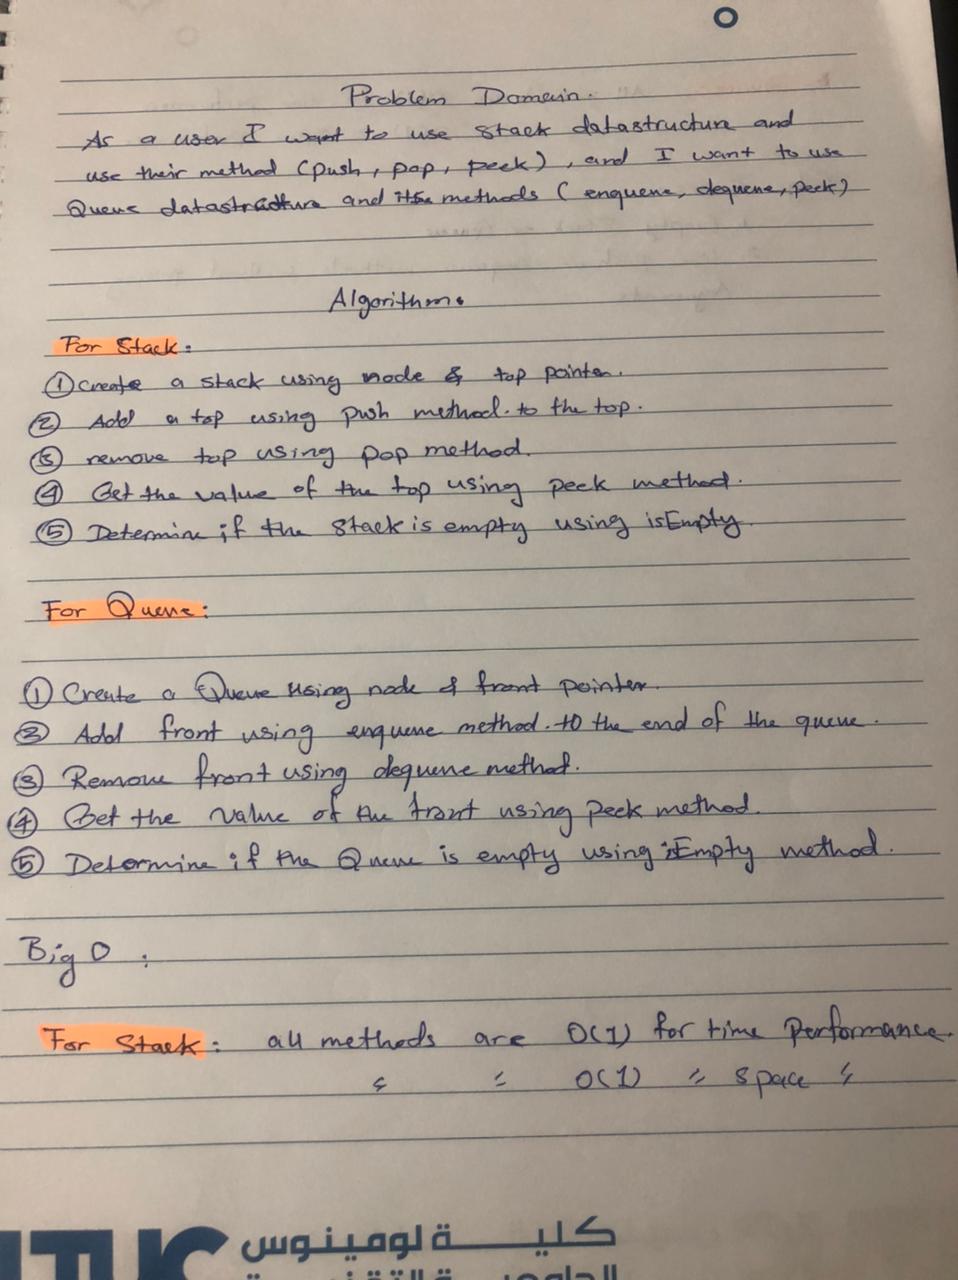 Problem Domain.
As a user I want to use stack datastructure and
use their method (push, pop, peek), and I want to use
Queue datastructure and its methods (enqueue, dequeue, peek)
Algorithm.
For Stack:
① Create a stack using node & top pointer.
② Add a top using push method. to the top.
③ remove top using pop method.
④ Get the value of the top using peek method.
⑤ Determine if the stack is empty using isEmpty.
For Queue:
① Create a Queue using node & front pointer.
② Add front using enqueue method. to the end of the queue.
③ Remove front using dequeue method.
④ Get the value of the front using peek method.
⑤ Determine if the Queue is empty using isEmpty method.
Big O :
For Stack: all methods are O(1) for time Performance.
" " O(1) " space "
LTUC كليـــة لومينوس